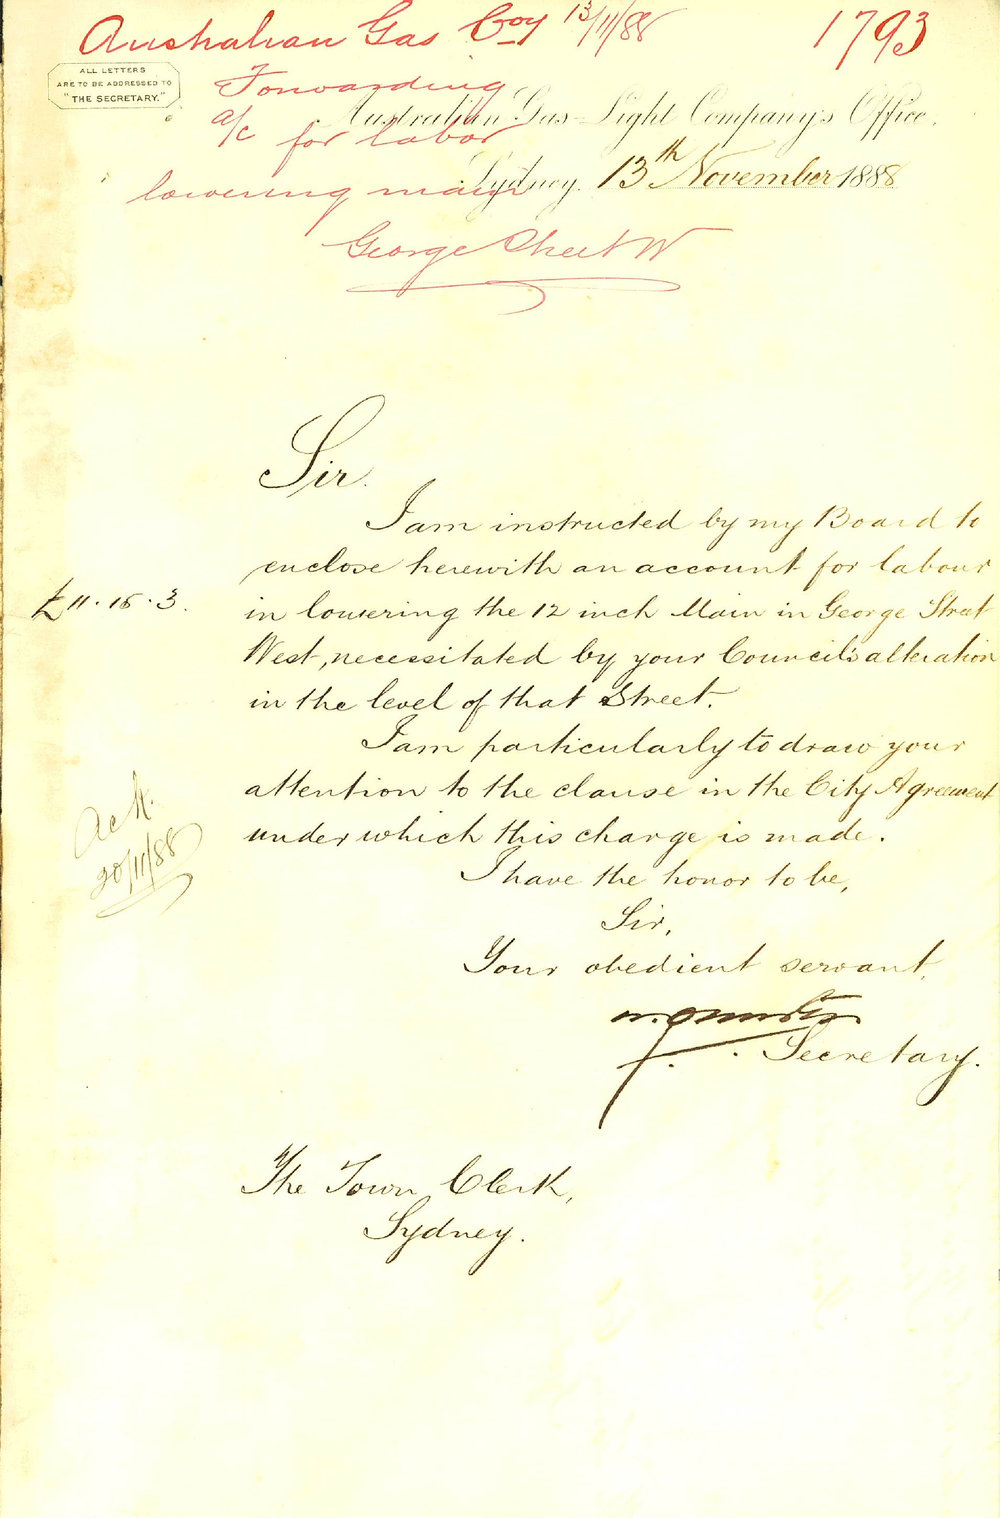 Australian Gas Coy 13/11/88 1793
ALL LETTERS
ARE TO BE ADDRESSED TO
"THE SECRETARY."
Forwarding
Australian Gas-Light Company's Office,
a/c for labor
Sydney, 13th November 1888
lowering main
George Street W
Sir.
I am instructed by my Board to
enclose herewith an account for labour
£11.16.3. in lowering the 12 inch Main in George Street
West, necessitated by your Council's alteration
in the level of that Street.
I am particularly to draw your
attention to the clause in the City Agreement
under which this charge is made.
Ack.
20/11/88
I have the honor to be,
Sir,
Your obedient servant,
Secretary.
The Town Clerk,
Sydney.